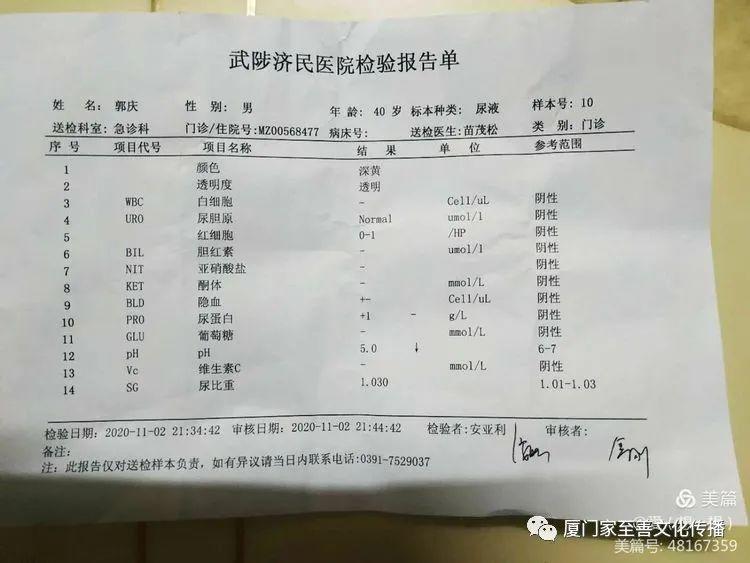 武陟济民医院检验报告单
姓 名: 郭庆 性 别: 男 年 龄: 40 岁 标本种类: 尿液 样本号: 10
送检科室: 急诊科 门诊/住院号:MZ00568477 病床号: 送检医生:苗茂松 类 别:门诊
序 号 项目代号 项目名称 结 果 单 位 参考范围
1 颜色 深黄
2 透明度 透明
3 WBC 白细胞 - Cell/uL 阴性
4 URO 尿胆原 Normal umol/l 阴性
5 红细胞 0-1 /HP 阴性
6 BIL 胆红素 - umol/l 阴性
7 NIT 亚硝酸盐 - 阴性
8 KET 酮体 - mmol/L 阴性
9 BLD 隐血 +- Cell/uL 阴性
10 PRO 尿蛋白 +1 - g/L 阴性
11 GLU 葡萄糖 - mmol/L 阴性
12 pH pH 5.0 ↓ 6-7
13 Vc 维生素C - mmol/L 阴性
14 SG 尿比重 1.030 1.01-1.03
检验日期: 2020-11-02 21:34:42 审核日期: 2020-11-02 21:44:42 检验者:安亚利 审核者:
备注:
注: 此报告仅对送检样本负责, 如有异议请当日内联系电话:0391-7529037
美篇
厦门家至善文化传播
美篇号: 48167359